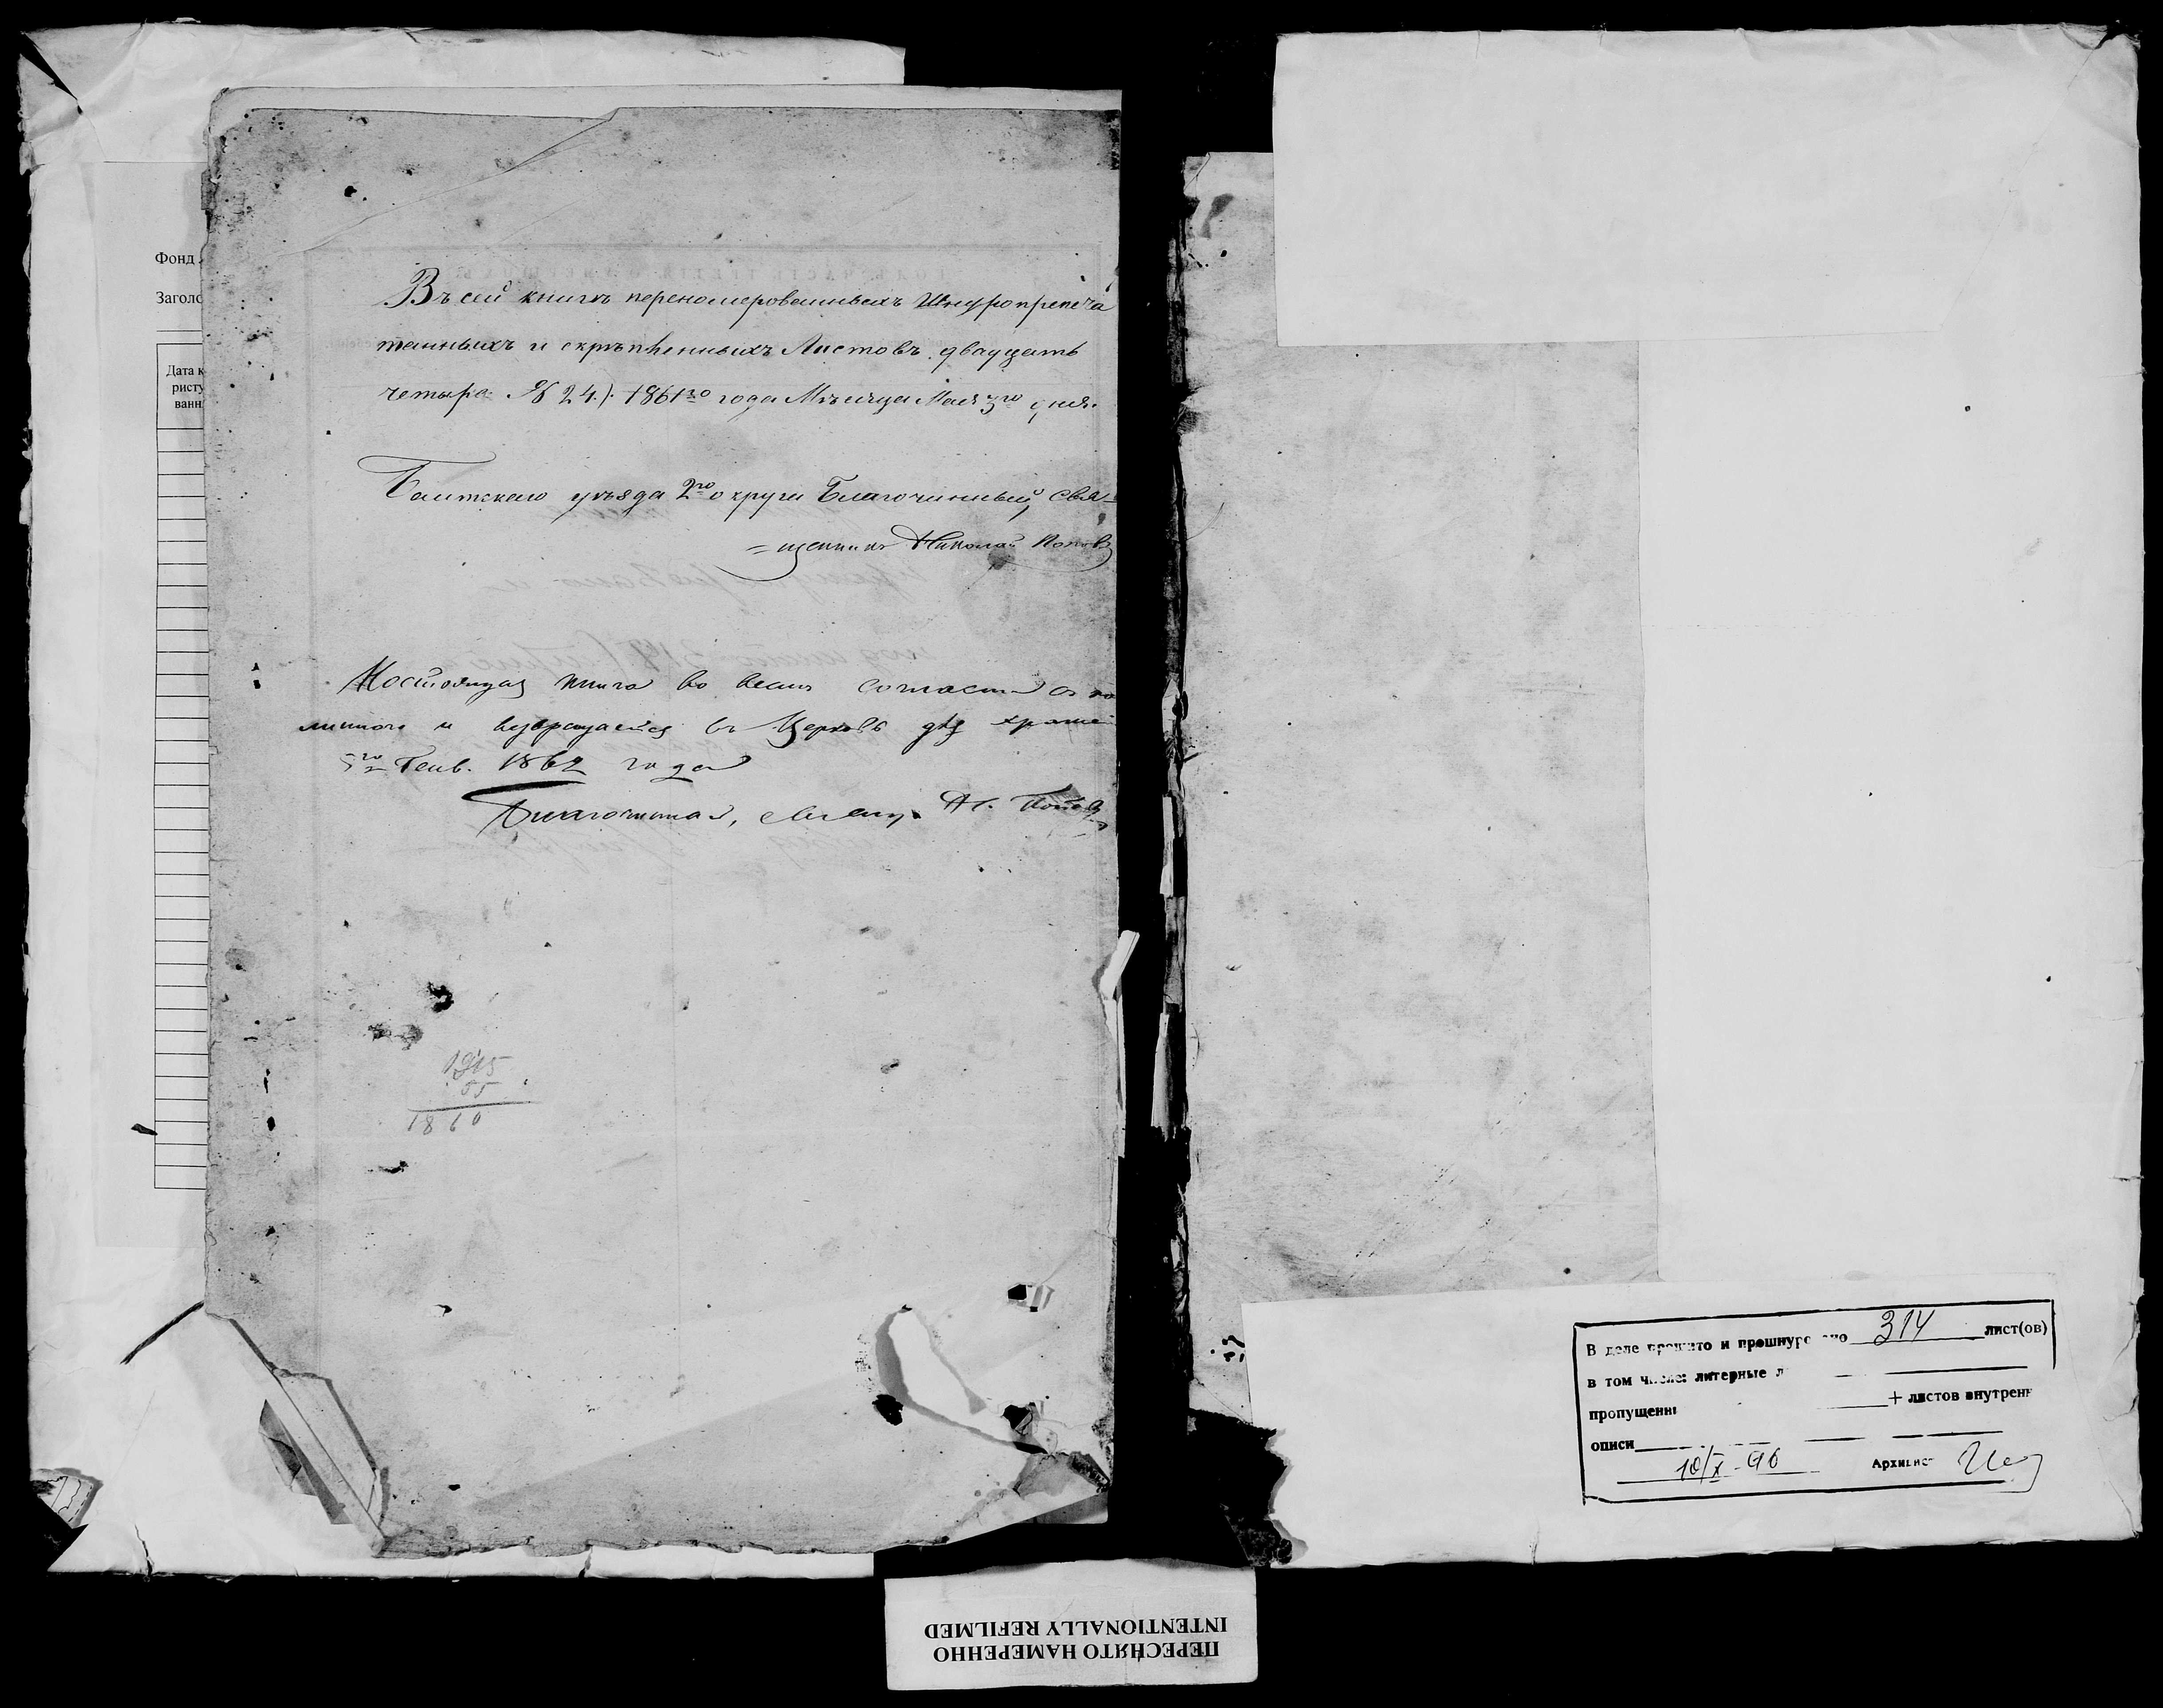 Фонд
Заголо
Дата к
ристу
ванн
Въ сей книгѣ перенамерованныхъ Шнуропрепеча
танныхъ и скрѣпленныхъ Листовъ двадцать
четыре № 24.). 1861го года Мѣсяца Мая 3го дня.
Балтскаго уѣзда 2го округа Благочинный, Свя-
=щенникъ Николай Поповъ
Настоящая книга во всемъ согласна съ по
длинною и возвращается въ Церковь для хране
5го Генв. 1862 года
Благочинный, Священ. Н. Поповъ
1915
55
1860
В деле прошито и прошнуро но 314 лист(ов)
в том числе: литерные л
пропущенн + листов внутренн
описи
10/X-96 Архивис
ПЕРЕСНЯТО НАМЕРЕННО
INTENTIONALLY REFILMED